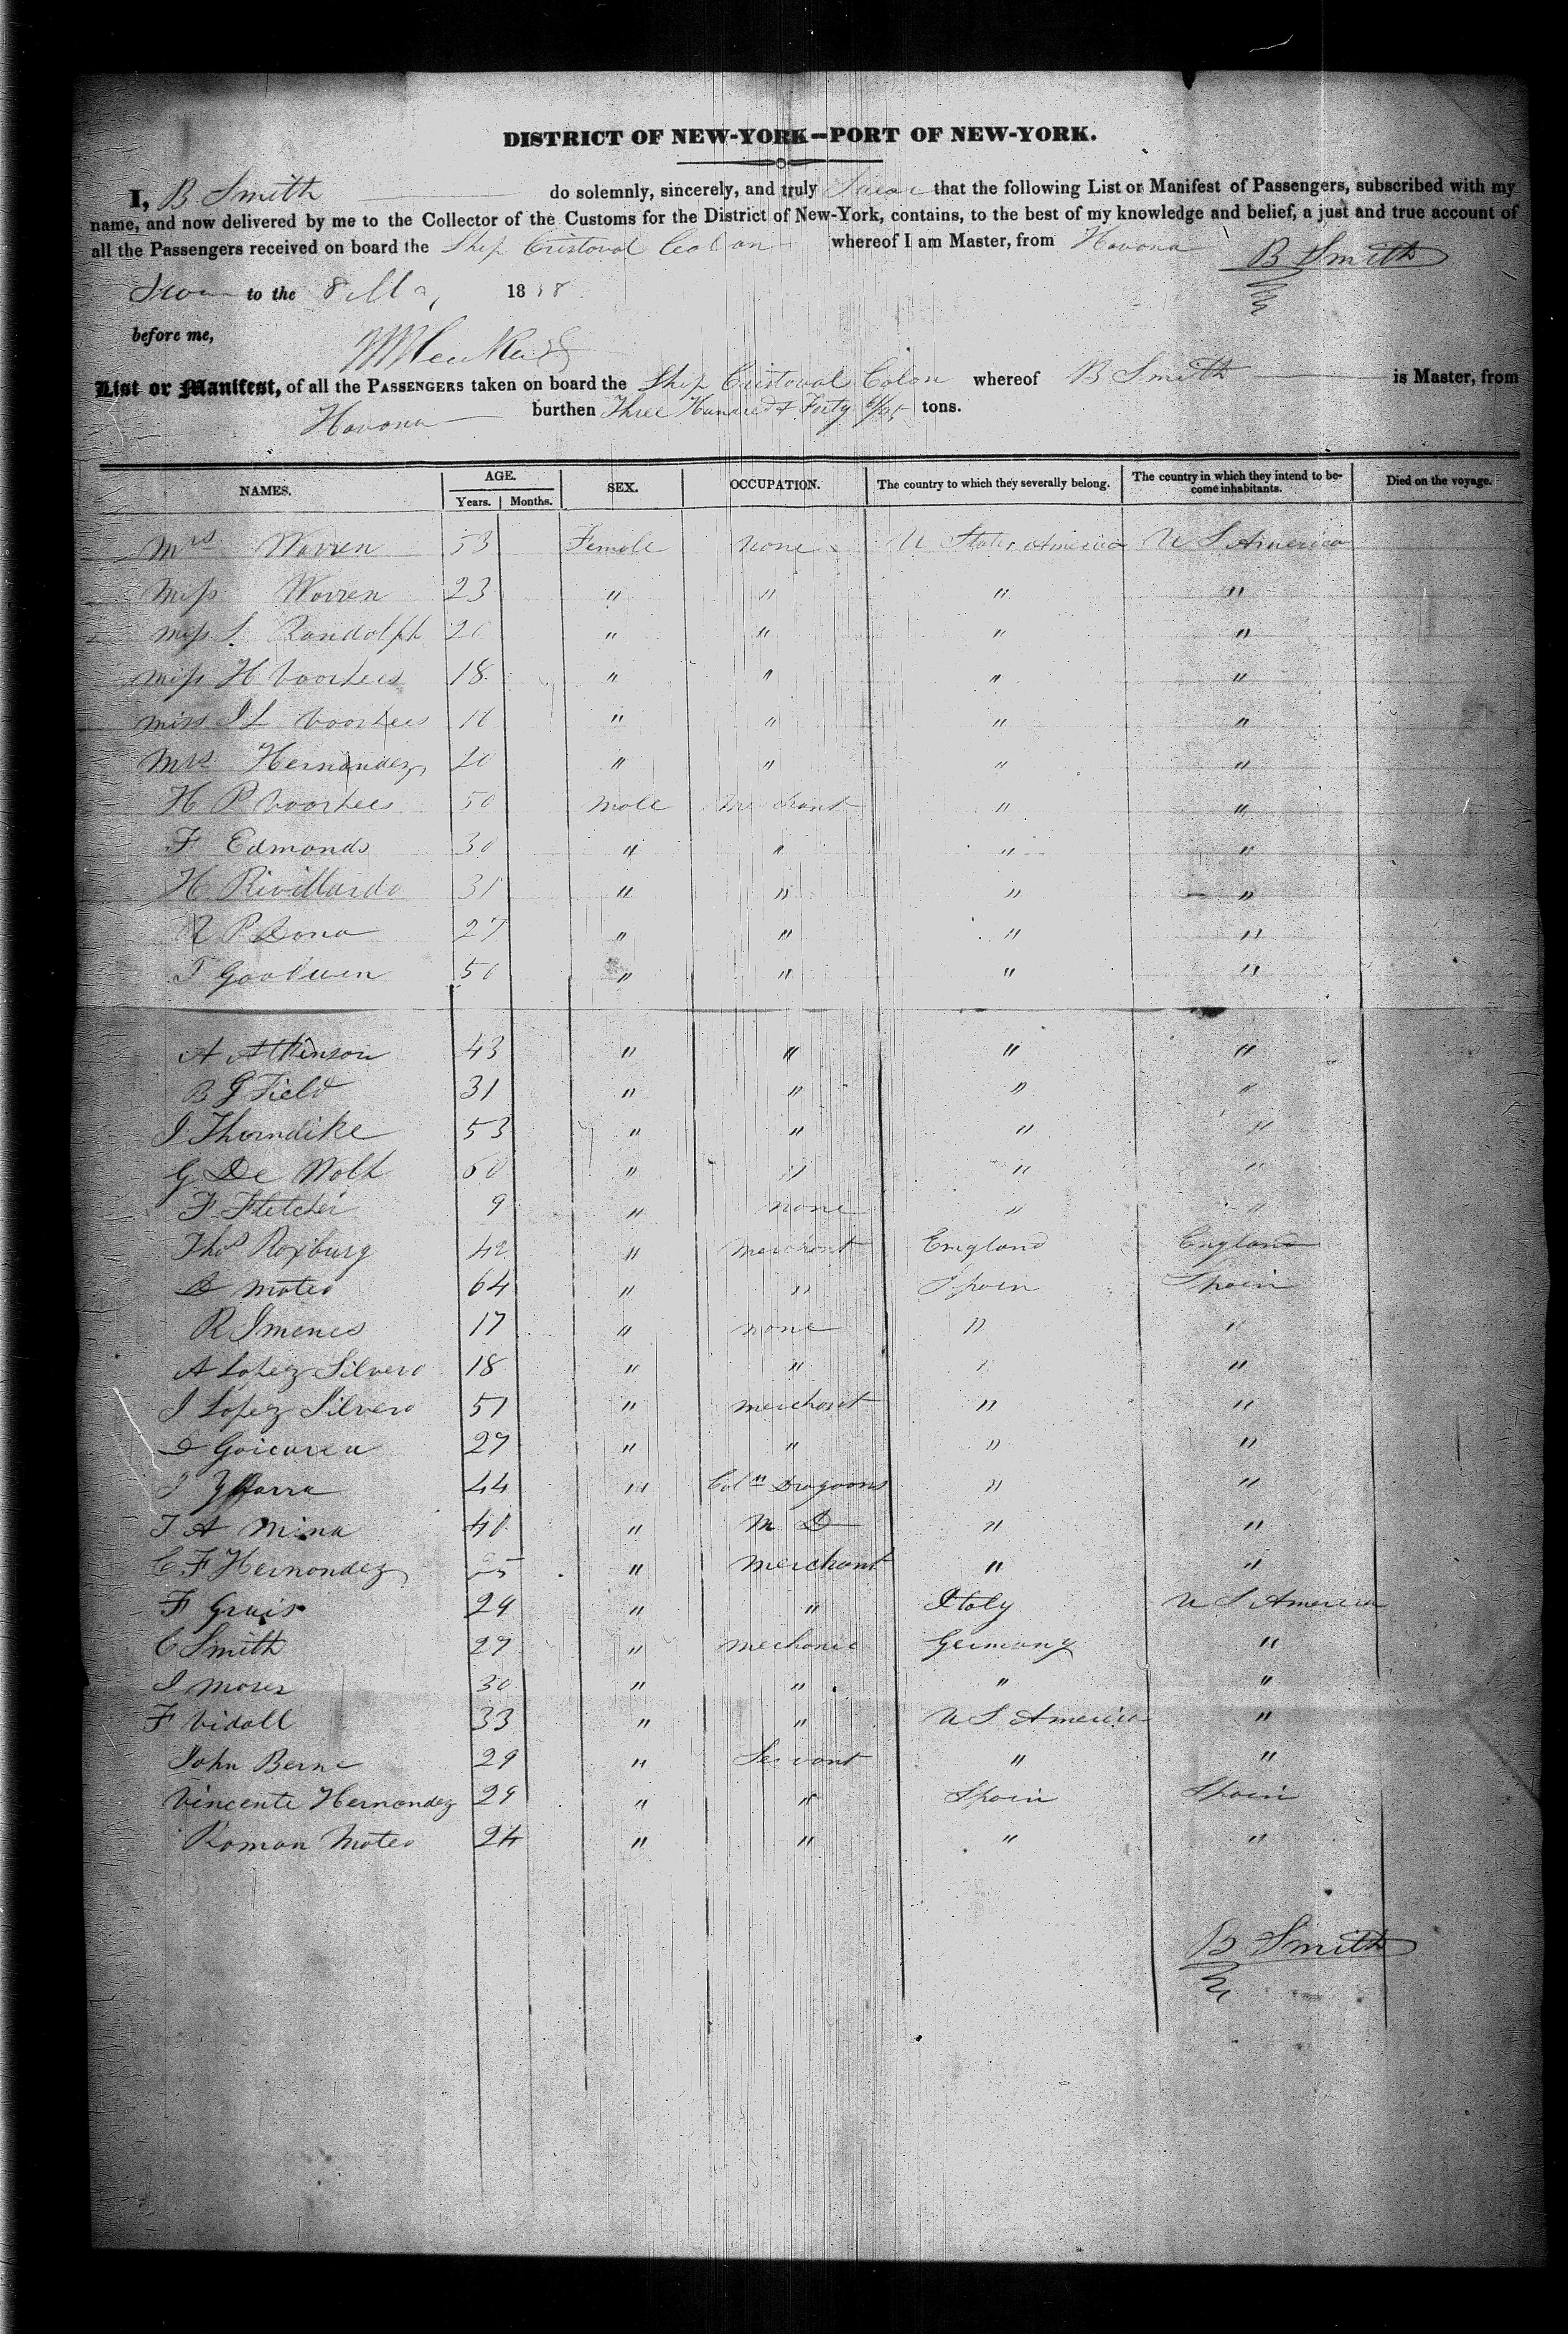 DISTRICT OF NEW-YORK—PORT OF NEW-YORK.
I, B Smith do solemnly, sincerely, and truly Swear that the following List or Manifest of Passengers, subscribed with my
name, and now delivered by me to the Collector of the Customs for the District of New-York, contains, to the best of my knowledge and belief, a just and true account of
all the Passengers received on board the Ship Cristoval Colon whereof I am Master, from Havana
B Smith
to the 8 18 8
before me,
List or Manifest, of all the PASSENGERS taken on board the Ship Cristoval Colon whereof B Smith is Master, from
Havana burthen Three Hundred & Forty 61/95 tons.
NAMES. AGE. SEX. OCCUPATION. The country to which they severally belong. The country in which they intend to be- Died on the voyage.
Years. Months. come inhabitants.
Mrs Warren 53 Female none U States America U S America
Miss Warren 23 " " " "
Miss S Randolph 20 " " " "
Miss H Voorhees 18 " " " "
Miss Voorhees " " " "
Mrs Hernandez 20 " " " "
H P Voorhees 50 Male Merchant " "
F Edmonds 30 " " " "
H " " " "
27 " " " "
T Goodwin 50 " " " "
A Atkinson 43 " " " "
B G Field 31 " " " "
I Thorndike 53 " " " "
G De Wolf " " " "
F Fletcher 9 " none " "
Thos Roxburg 42 " Merchant England England
D Mateo 64 " " Spain Spain
R Imenes 17 " none " "
A Lopez Silvero 18 " " " "
I Lopez Silvero 51 " merchant " "
D 27 " " " "
44 " Coln Dragoons " "
T A Mina 40 " M D " "
C F Hernandez 25 " Merchant " "
F 29 " " Italy U S America
C Smith 27 " mechanic Germany "
I Moses 30 " " " "
F Vidall 33 " " U S America "
John Berne 29 " Servant " "
Vincente Hernandez 29 " " Spain Spain
Roman Mateo 24 " " " "
B Smith